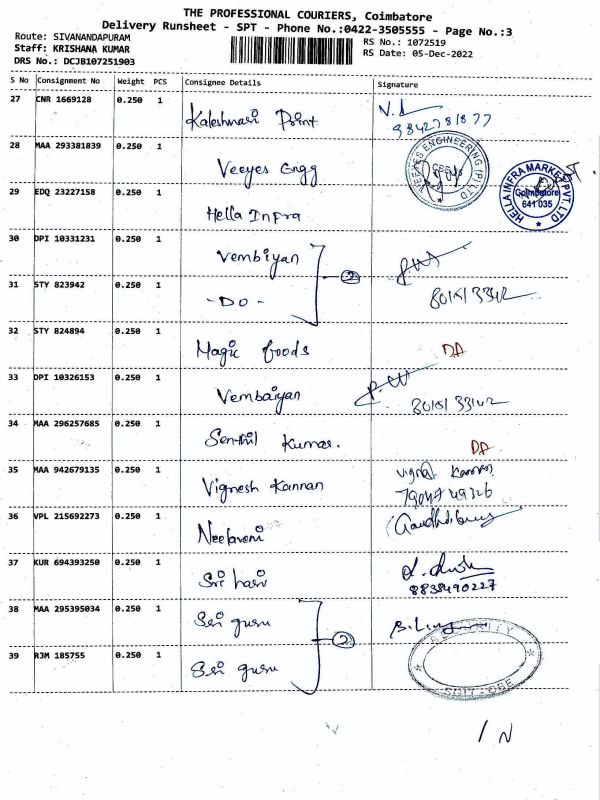 THE PROFESSIONAL COURIERS, Coimbatore
Delivery Runsheet - SPT - Phone No.:0422-3505555 - Page No.:3
Route: SIVANANDAPURAM
Staff: KRISHANA KUMAR
DRS No.: DCJB107251903
RS No.: 1072519
RS Date: 05-Dec-2022
S No Consignment No Weight PCS Consignee Details Signature
27 CNR 1669128 0.250 1 Kaleshwari Point
9842781877
28 MAA 293381839 0.250 1 Veeyes Engg
VEEYES ENGINEERING (P) LTD
29 EDQ 23227158 0.250 1 Hella Infra
HELLA INFRA MARKET PVT. LTD
Coimbatore
641 035
30 DPI 10331231 0.250 1 Vembiyan
2
31 STY 823942 0.250 1 - DO -
32 STY 824894 0.250 1 Magic foods DA
33 DPI 10326153 0.250 1 Vembaiyan
34 MAA 296257685 0.250 1 Senthil Kumar. DA
35 MAA 942679135 0.250 1 Vignesh Kannan
36 VPL 215692273 0.250 1 Neelaveni
37 KUR 694393250 0.250 1 Sri hari
8838490227
38 MAA 295395034 0.250 1 Sri guru
2
39 RJM 185755 0.250 1 Sri guru